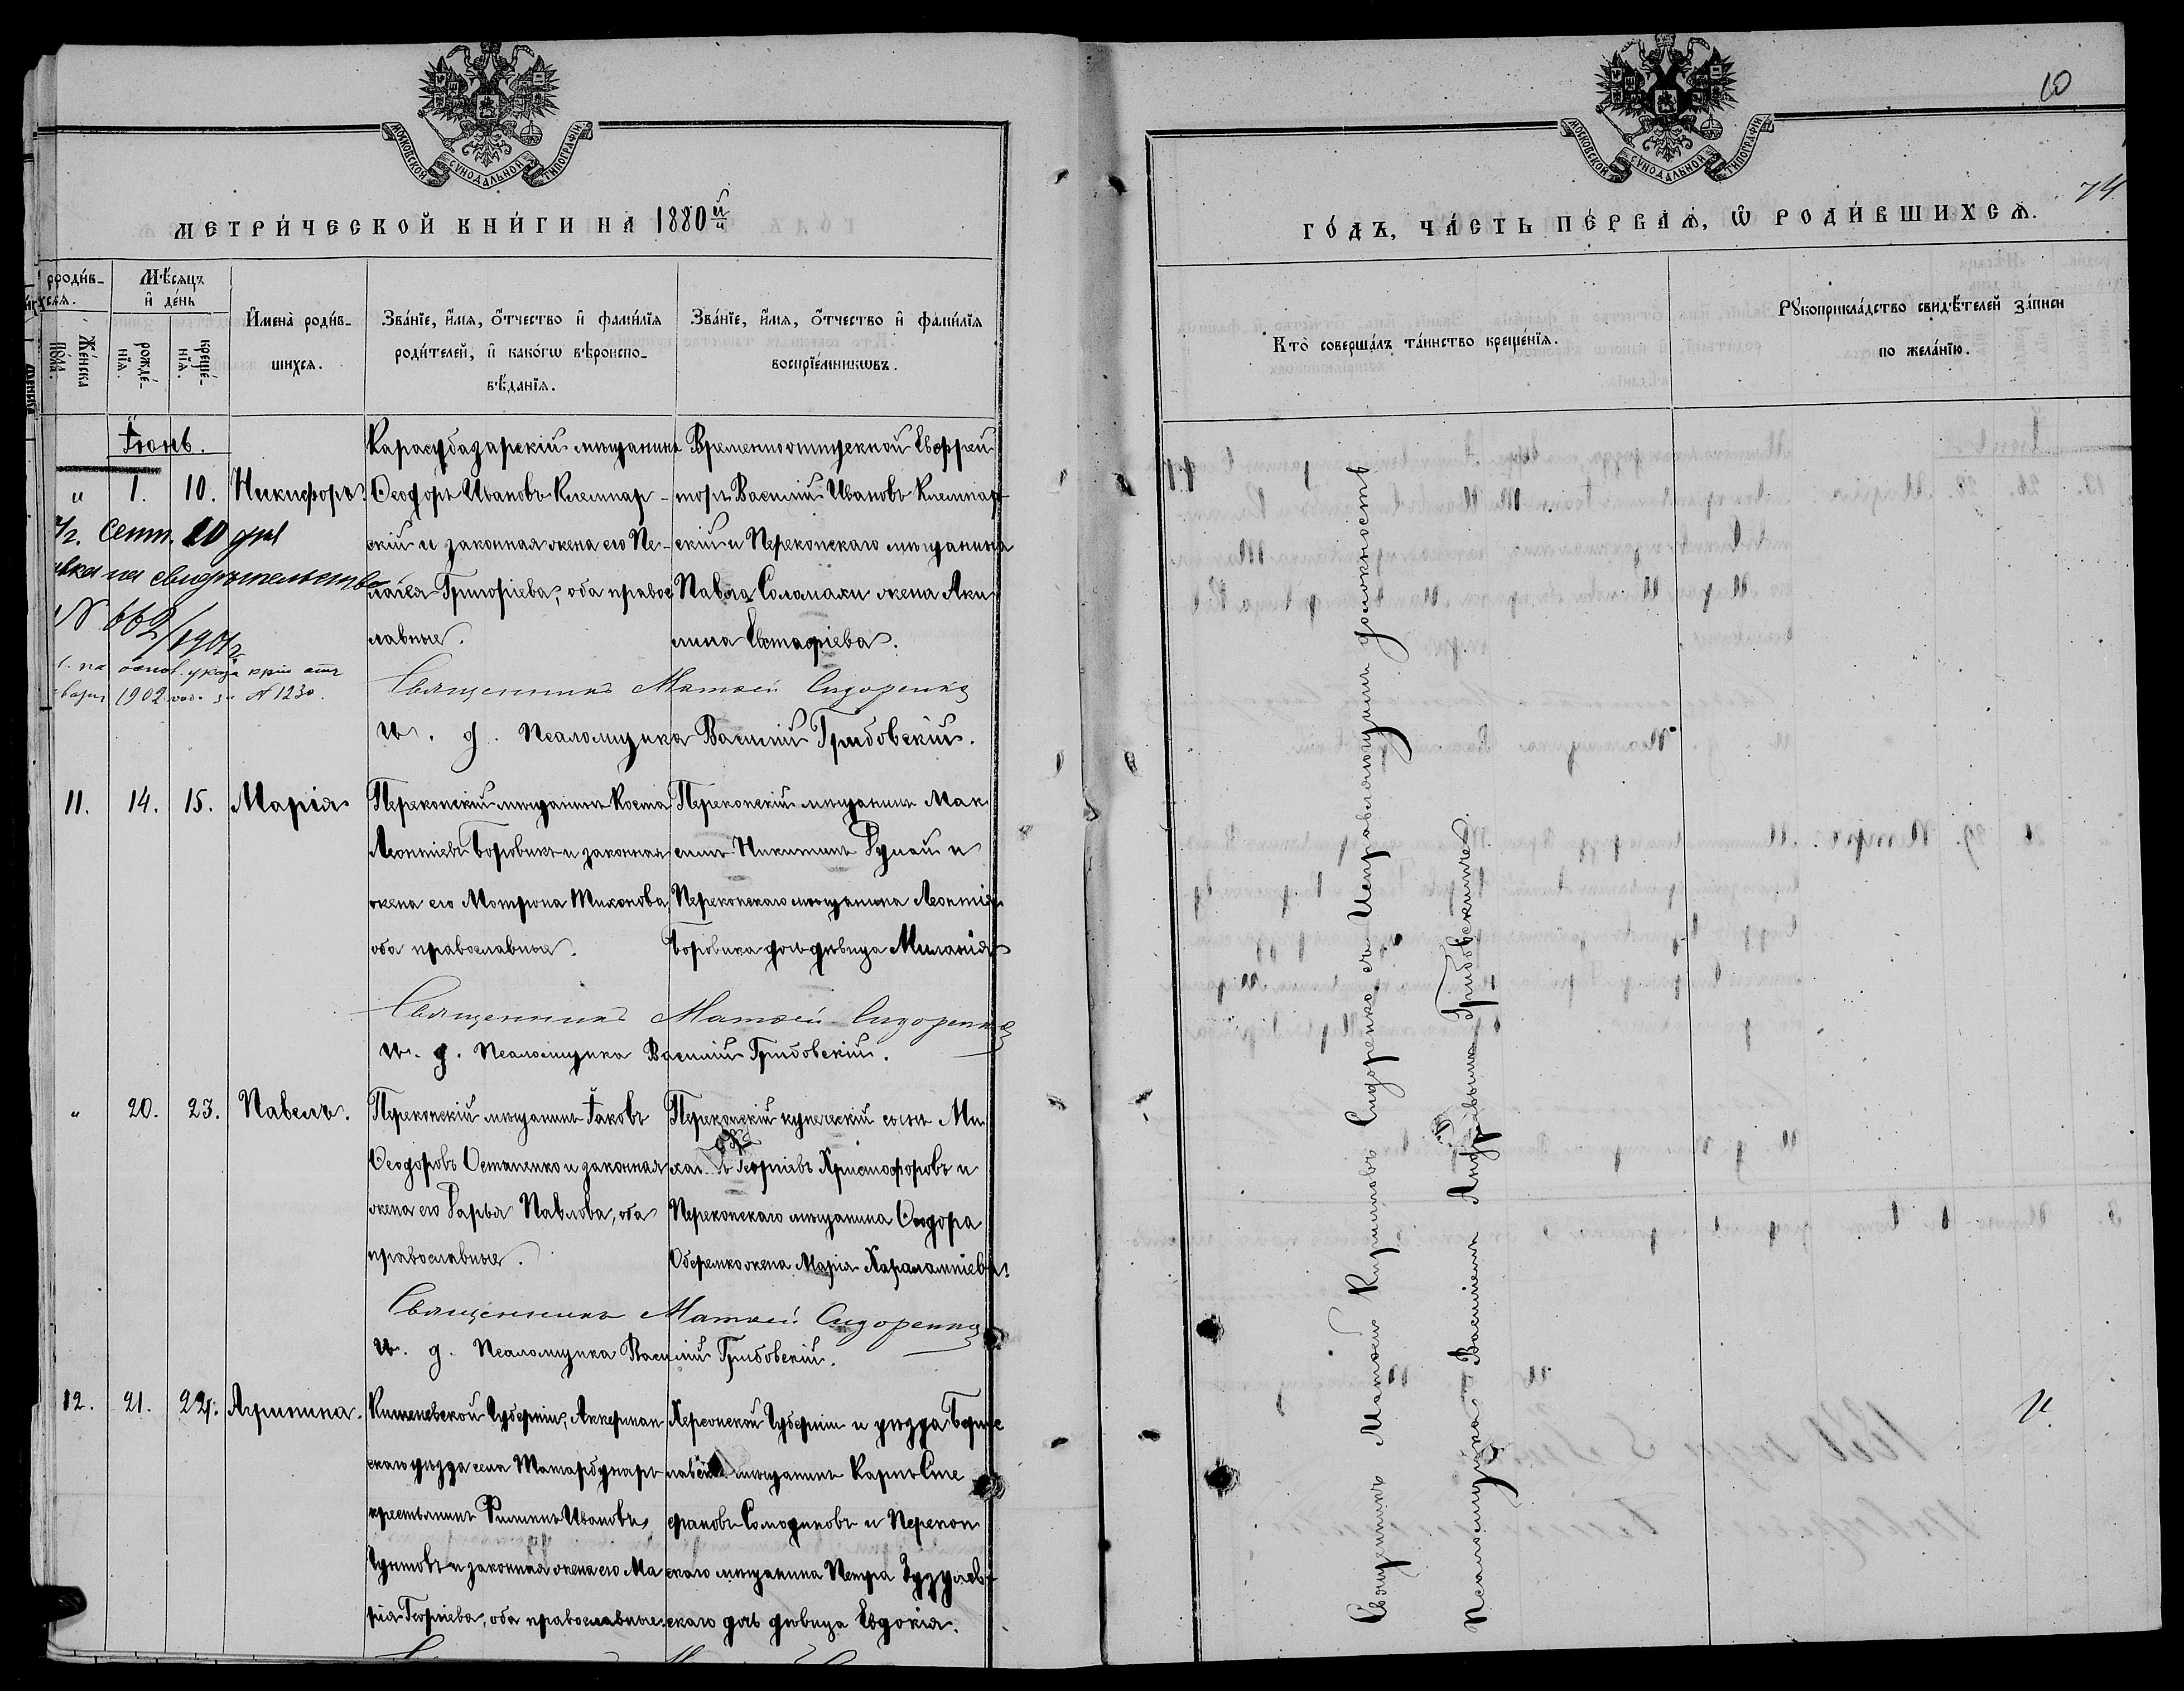 МОСКОВСКОЙ СѴНОДАЛЬНОЙ ТИПОГРАФІИ
МЕТРИ́ЧЕСКОЙ КНИ́ГИ НА 1880й
рроди́в-
хсѧ.
Же́нска
пола.
Мѣ́сяцъ
и҆ де́нь
рожде́-
нїѧ.
креще́-
нїѧ.
И҆мена̀ роди́в-
шихсѧ.
Зва́нїе, и҆́мѧ, ѻ҆́тчество и҆ фами́лїѧ
роди́телей, и҆ како́гѡ вѣроиспо-
вѣ́данїѧ.
Зва́нїе, и҆́мѧ, ѻ҆́тчество и҆ фами́лїѧ
воспрїе́мникѡвъ.
Іюнь.
" 1. 10. Никифоръ.
Карасубазарскій мѣщанинъ
Ѳеодоръ Ивановъ Клемпар-
скій и законная жена его Пе-
лагея Григоріева, оба правос
лавные.
Временноотпускной Ефрей
торъ Василій Ивановъ Клемпар-
скій и Перекопскаго мѣщанина
Павла Соломахи жена Аки
лина Евстафіева.
Сент. 20 дня
на свидѣтельство
N 662/1901 г.
на основ. указа
1902 года за N 1230.
Священникъ Матѳей Сидоренко
И. д. Псаломщика Василій Грибовскій.
11. 14. 15. Марія
Перекопскій мѣщанинъ Косма
Леонтіевъ Боровикъ и законная
жена его Мотрона Тихонова,
оба православные.
Перекопскій мѣщанинъ Мак
симъ Никитинъ Дунай и
Перекопскаго мѣщанина Леонтія
Боровика дочь дѣвица Миланія
Священникъ Матѳей Сидоренко
И. д. Псаломщика Василій Грибовскій.
" 20. 23. Павелъ.
Перекопскій мѣщанинъ Іаковъ
Ѳеодоровъ Остапенко и законная
жена его Дарья Павлова, оба
православные.
Перекопскій купеческій сынъ Ми
хаилъ Георгіевъ Христофоровъ и
Перекопскаго мѣщанина Ѳеодора
Оберемко жена Марія Харалампіева.
Священникъ Матѳей Сидоренко
И. д. Псаломщика Василій Грибовскій.
12. 21. 24. Агрипина.
Кишеневской Губерніи, Аккерман
скаго уѣзда села Татарбунаръ
крестьянинъ Филиппъ Ивановъ
и законная жена его Ма
рія Георгіева, оба православные.
Херсонской Губерніи и уѣзда Борис
лавскій мѣщанинъ Карпъ Сте
фановъ Солодиковъ и Перекоп
скаго мѣщанина Петра
скаго дочь дѣвица Евдокія.
10
74
МОСКОВСКОЙ СѴНОДАЛЬНОЙ ТИПОГРАФІИ
ГО́ДЪ, ЧА́СТЬ ПЕ́РВАѦ, Ѡ҆ РОДИ́ВШИХСѦ.
Кто̀ соверша́лъ та́инство креще́нїѧ.
Рꙋкоприкла́дство свидѣ́телей за́писи
по жела́нїю.
Священникъ Матѳей Кирилловъ Сидоренко съ Исправляющимъ должность
Псаломщика Василіемъ Андреевымъ Грибовскимъ.